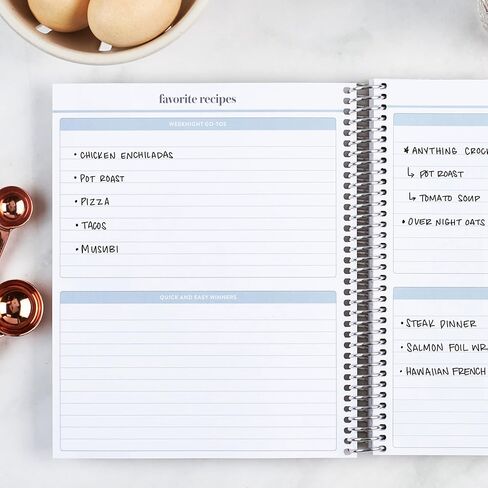 favorite recipes
WEEKNIGHT GO-TOS
• CHICKEN ENCHILADAS
• POT ROAST
• PIZZA
• TACOS
• MUSUBI
QUICK AND EASY WINNERS
* ANYTHING CROCK
↳ POT ROAST
↳ TOMATO SOUP
• OVER NIGHT OATS
• STEAK DINNER
• SALMON FOIL WR
• HAWAIIAN FRENCH